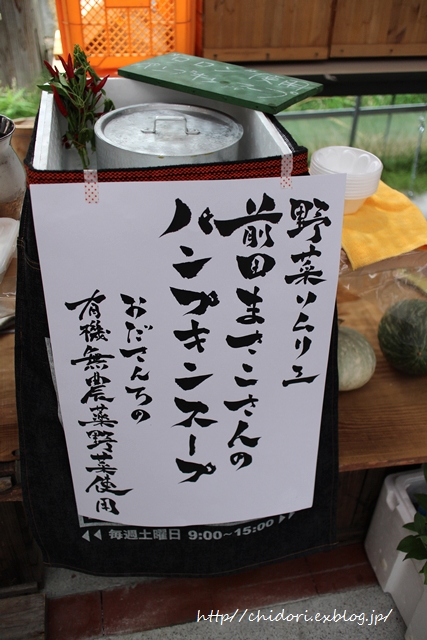 野菜ソムリエ
前田まさこさんの
パンプキンスープ
おださんちの
有機無農薬野菜使用
◀◀ 毎週土曜日 9:00~15:00 ▶▶
http://chidori.exblog.jp/